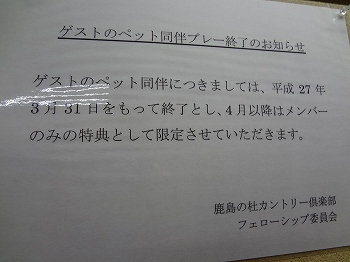 ゲストのペット同伴プレー終了のお知らせ
ゲストのペット同伴につきましては、平成 27 年
3 月 31 日をもって終了とし、4 月以降はメンバー
のみの特典として限定させていただきます。
鹿島の杜カントリー倶楽部
フェローシップ委員会